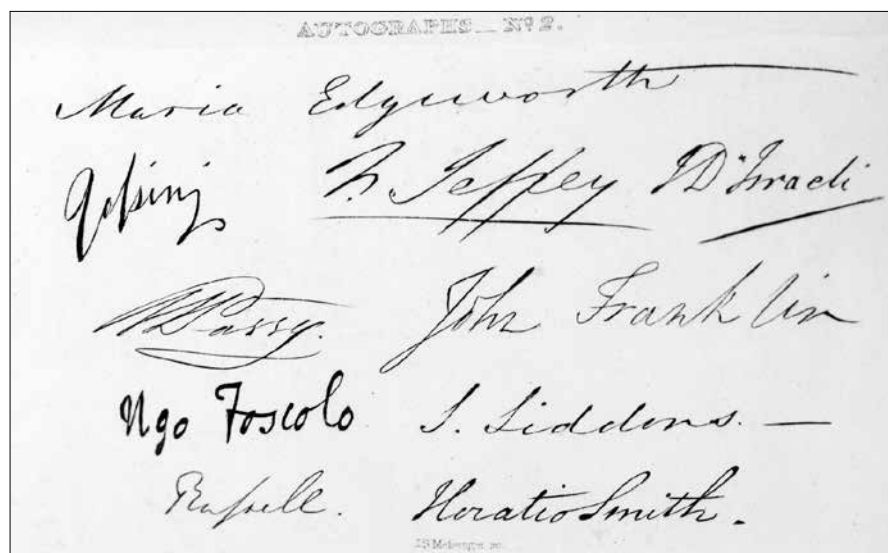 AUTOGRAPHS _ Nº 2.
Maria Edgeworth
F. Jeffrey I D'Israeli
W E Parry. John Franklin
Ugo Foscolo S. Siddons. —
Russell. Horatio Smith.